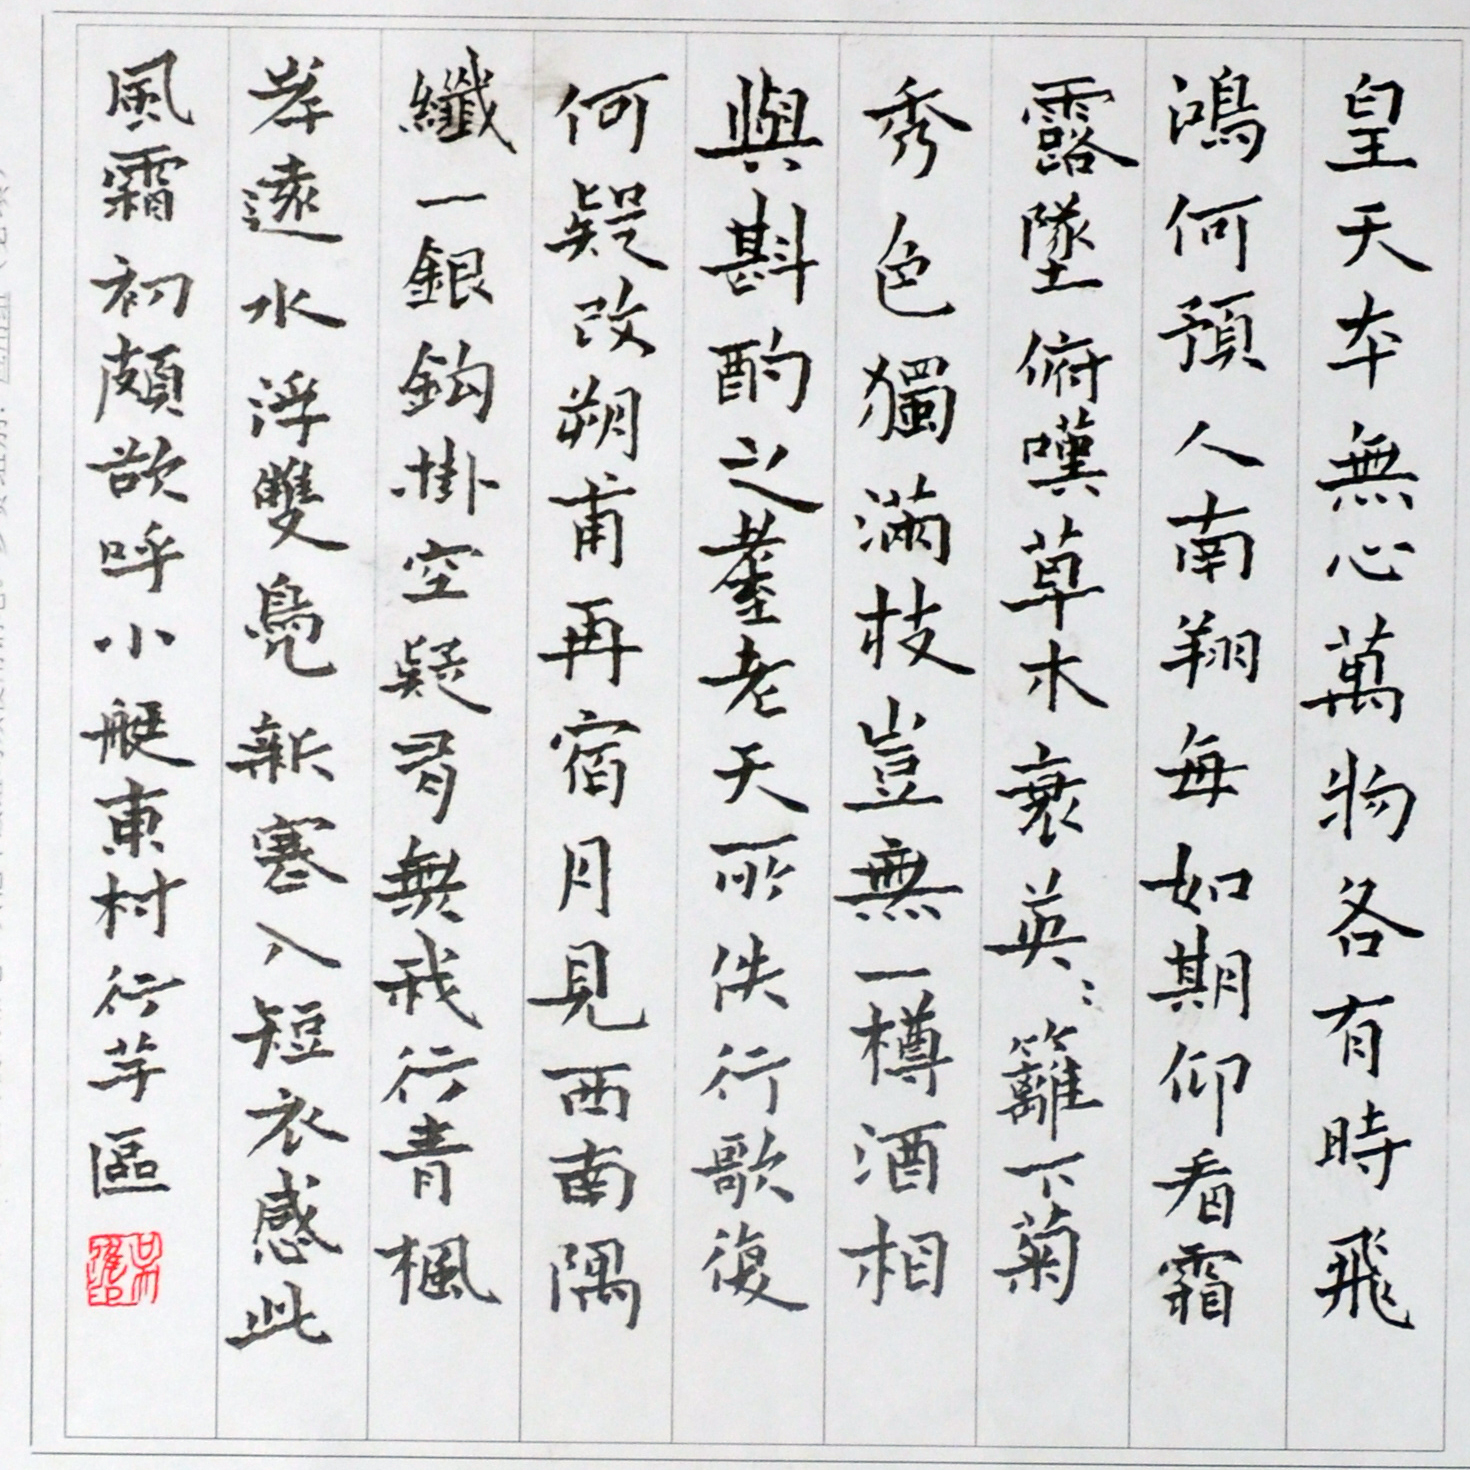 皇天本無心萬物各有時飛
鴻何預人南翔每如期仰看霜
露墜俯嘆草木衰英〻籬下菊
秀色獨滿枝豈無一樽酒相
與斟酌之耋老天所佚行歌復
何疑改朔甫再宿月見西南隅
纖一銀鈎掛空疑有無我行青楓
岸遠水浮雙鳧新寒入短衣感此
風霜初頗欲呼小艇東村行芋區